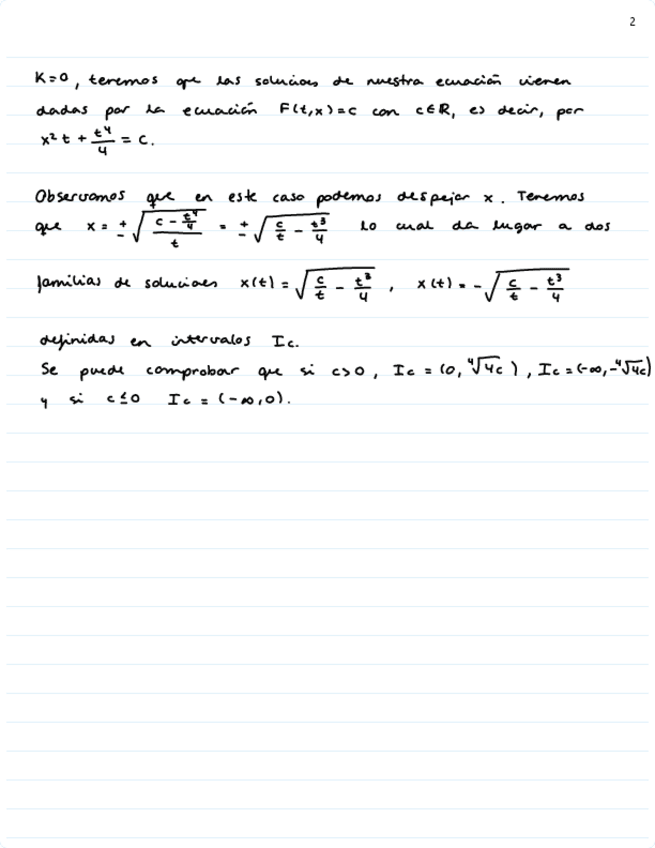 2
K=0, tenemos que las soluciones de nuestra ecuación vienen
dadas por la ecuación F(t,x)=c con c∈ℝ, es decir, por
x²t + t⁴/4 = c.
Observamos que en este caso podemos despejar x. Tenemos
que x = ±√((c - t⁴/4)/t) = ±√(c/t - t³/4) lo cual da lugar a dos
familias de soluciones x(t) = √(c/t - t³/4), x(t) = -√(c/t - t³/4)
definidas en intervalos Ic.
Se puede comprobar que si c>0, Ic = (0, ⁴√4c), Ic = (-∞, -⁴√4c)
y si c≤0 Ic = (-∞,0).